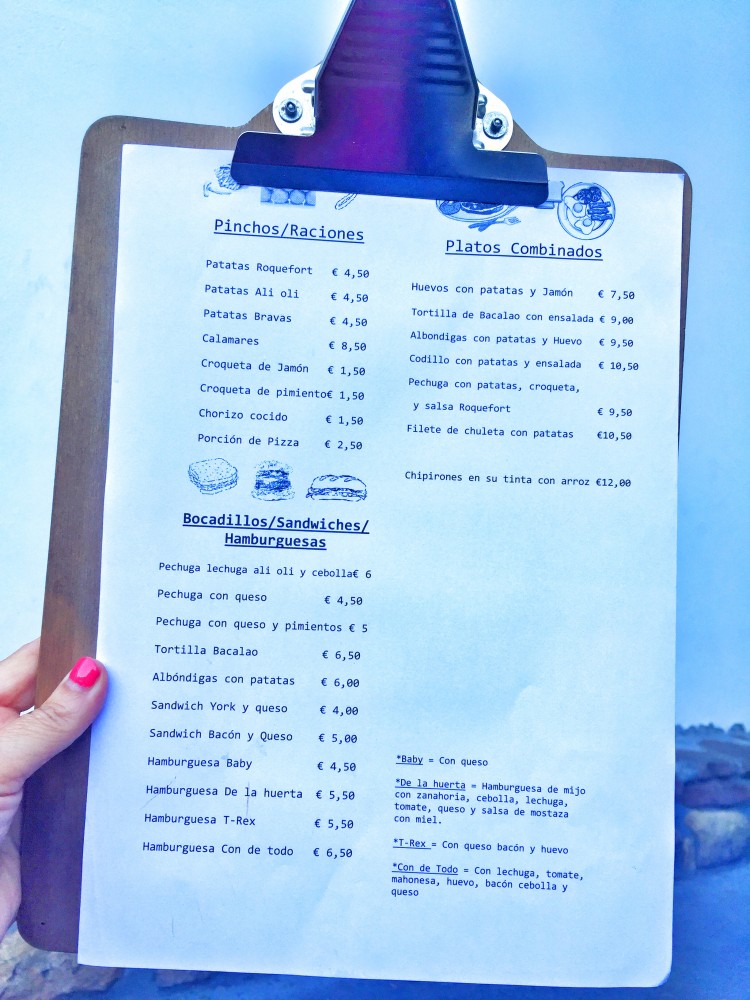 Pinchos/Raciones
Patatas Roquefort € 4,50
Patatas Ali oli € 4,50
Patatas Bravas € 4,50
Calamares € 8,50
Croqueta de Jamón € 1,50
Croqueta de pimiento€ 1,50
Chorizo cocido € 1,50
Porción de Pizza € 2,50
Bocadillos/Sandwiches/
Hamburguesas
Pechuga lechuga ali oli y cebolla€ 6
Pechuga con queso € 4,50
Pechuga con queso y pimientos € 5
Tortilla Bacalao € 6,50
Albóndigas con patatas € 6,00
Sandwich York y queso € 4,00
Sandwich Bacón y Queso € 5,00
Hamburguesa Baby € 4,50
Hamburguesa De la huerta € 5,50
Hamburguesa T-Rex € 5,50
Hamburguesa Con de todo € 6,50
Platos Combinados
Huevos con patatas y Jamón € 7,50
Tortilla de Bacalao con ensalada € 9,00
Albondigas con patatas y Huevo € 9,50
Codillo con patatas y ensalada € 10,50
Pechuga con patatas, croqueta,
y salsa Roquefort € 9,50
Filete de chuleta con patatas €10,50
Chipirones en su tinta con arroz €12,00
*Baby = Con queso
*De la huerta = Hamburguesa de mijo
con zanahoria, cebolla, lechuga,
tomate, queso y salsa de mostaza
con miel.
*T-Rex = Con queso bacón y huevo
*Con de Todo = Con lechuga, tomate,
mahonesa, huevo, bacón cebolla y
queso